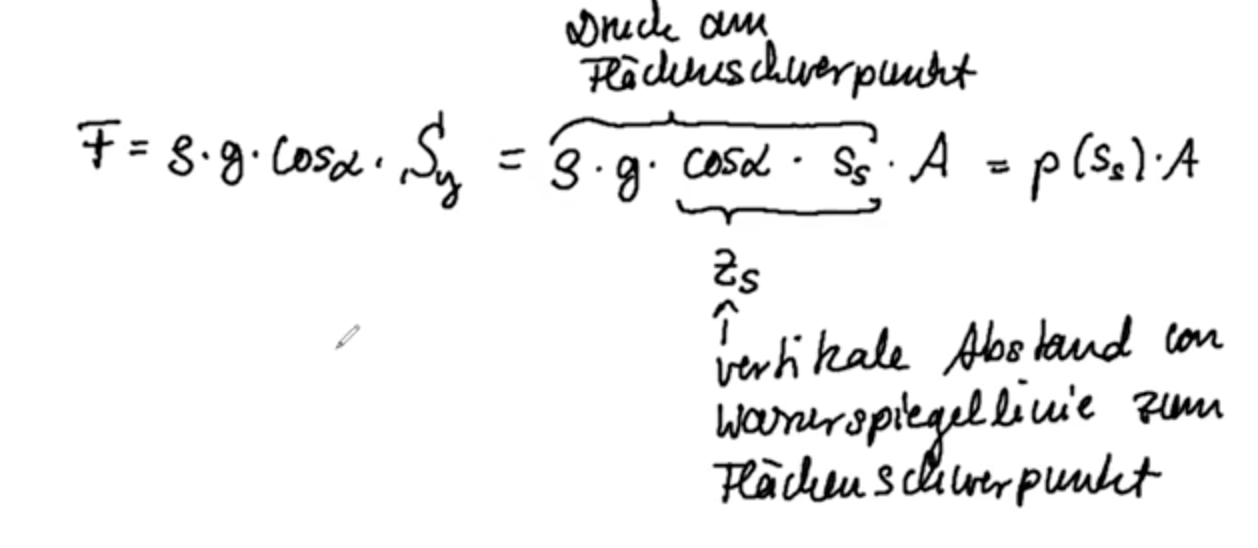 Druck am
Flächenschwerpunkt
F = ρ · g · cosα · S_y = ρ · g · cosα · s_s · A = p(s_s) · A
z_s
↑
vertikale Abstand von
Wasserspiegellinie zum
Flächenschwerpunkt